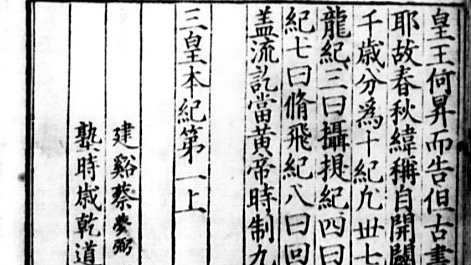 皇王何昇而告但古書
耶故春秋緯稱自開闢
千歲分爲十紀凢丗七
龍紀三曰攝提紀四曰
紀七曰脩飛紀八曰囘
盖流訖當黄帝時制九
三皇本紀第一上
建谿蔡夢弼
塾時歲乾道